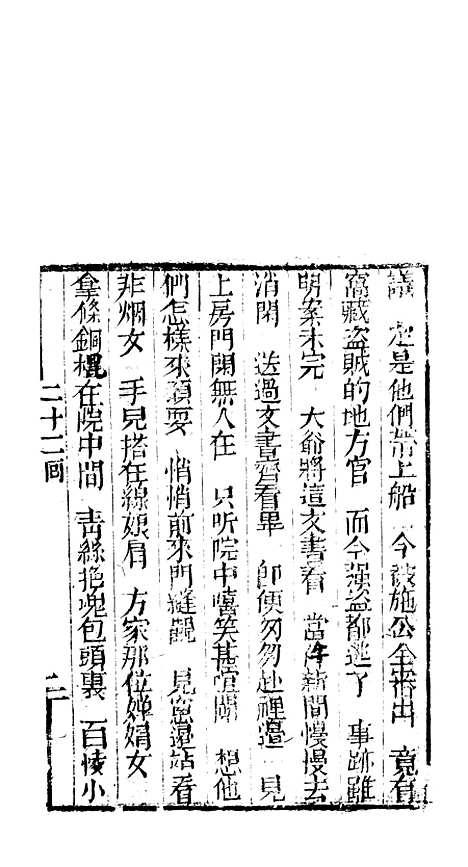 議　定是他們帶上船　今被施公全審出　竟有
窩藏盜賊的地方官　而今强盜都逃了　事跡雖
明案未完　大爺將這文書看　當作新聞慢慢去
消閑　送過文書齊看畢　即便匆匆赴裡邊　見
上房門閑無人在　只听院中嘻笑甚喧鬧　想他
們怎樣來頑耍　悄悄前來門縫觀　見窓邊站着
非烟女　手兒搭在線娘肩　方家那位嬋娟女
拿條銅棍在院中間　青絲挽地包頭裏　百㥄小
二十二囘　二